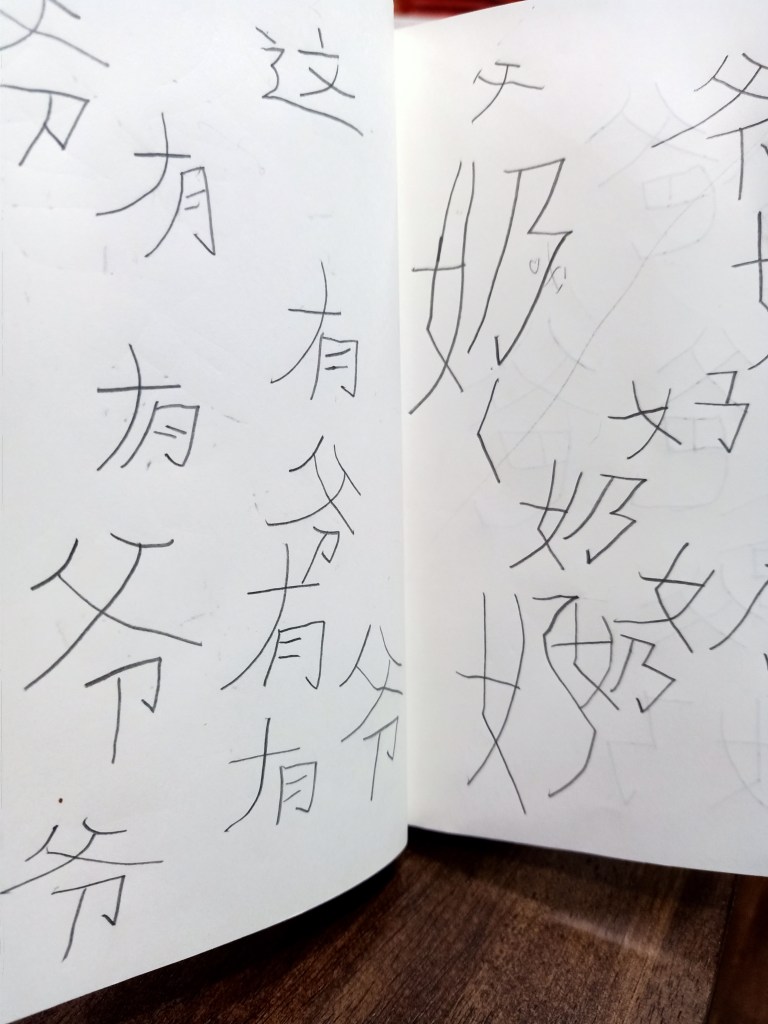 爷 这
有
有
有
爷
爷
有
爷
有
爷
爷
奶
奶
奶
奶
奶